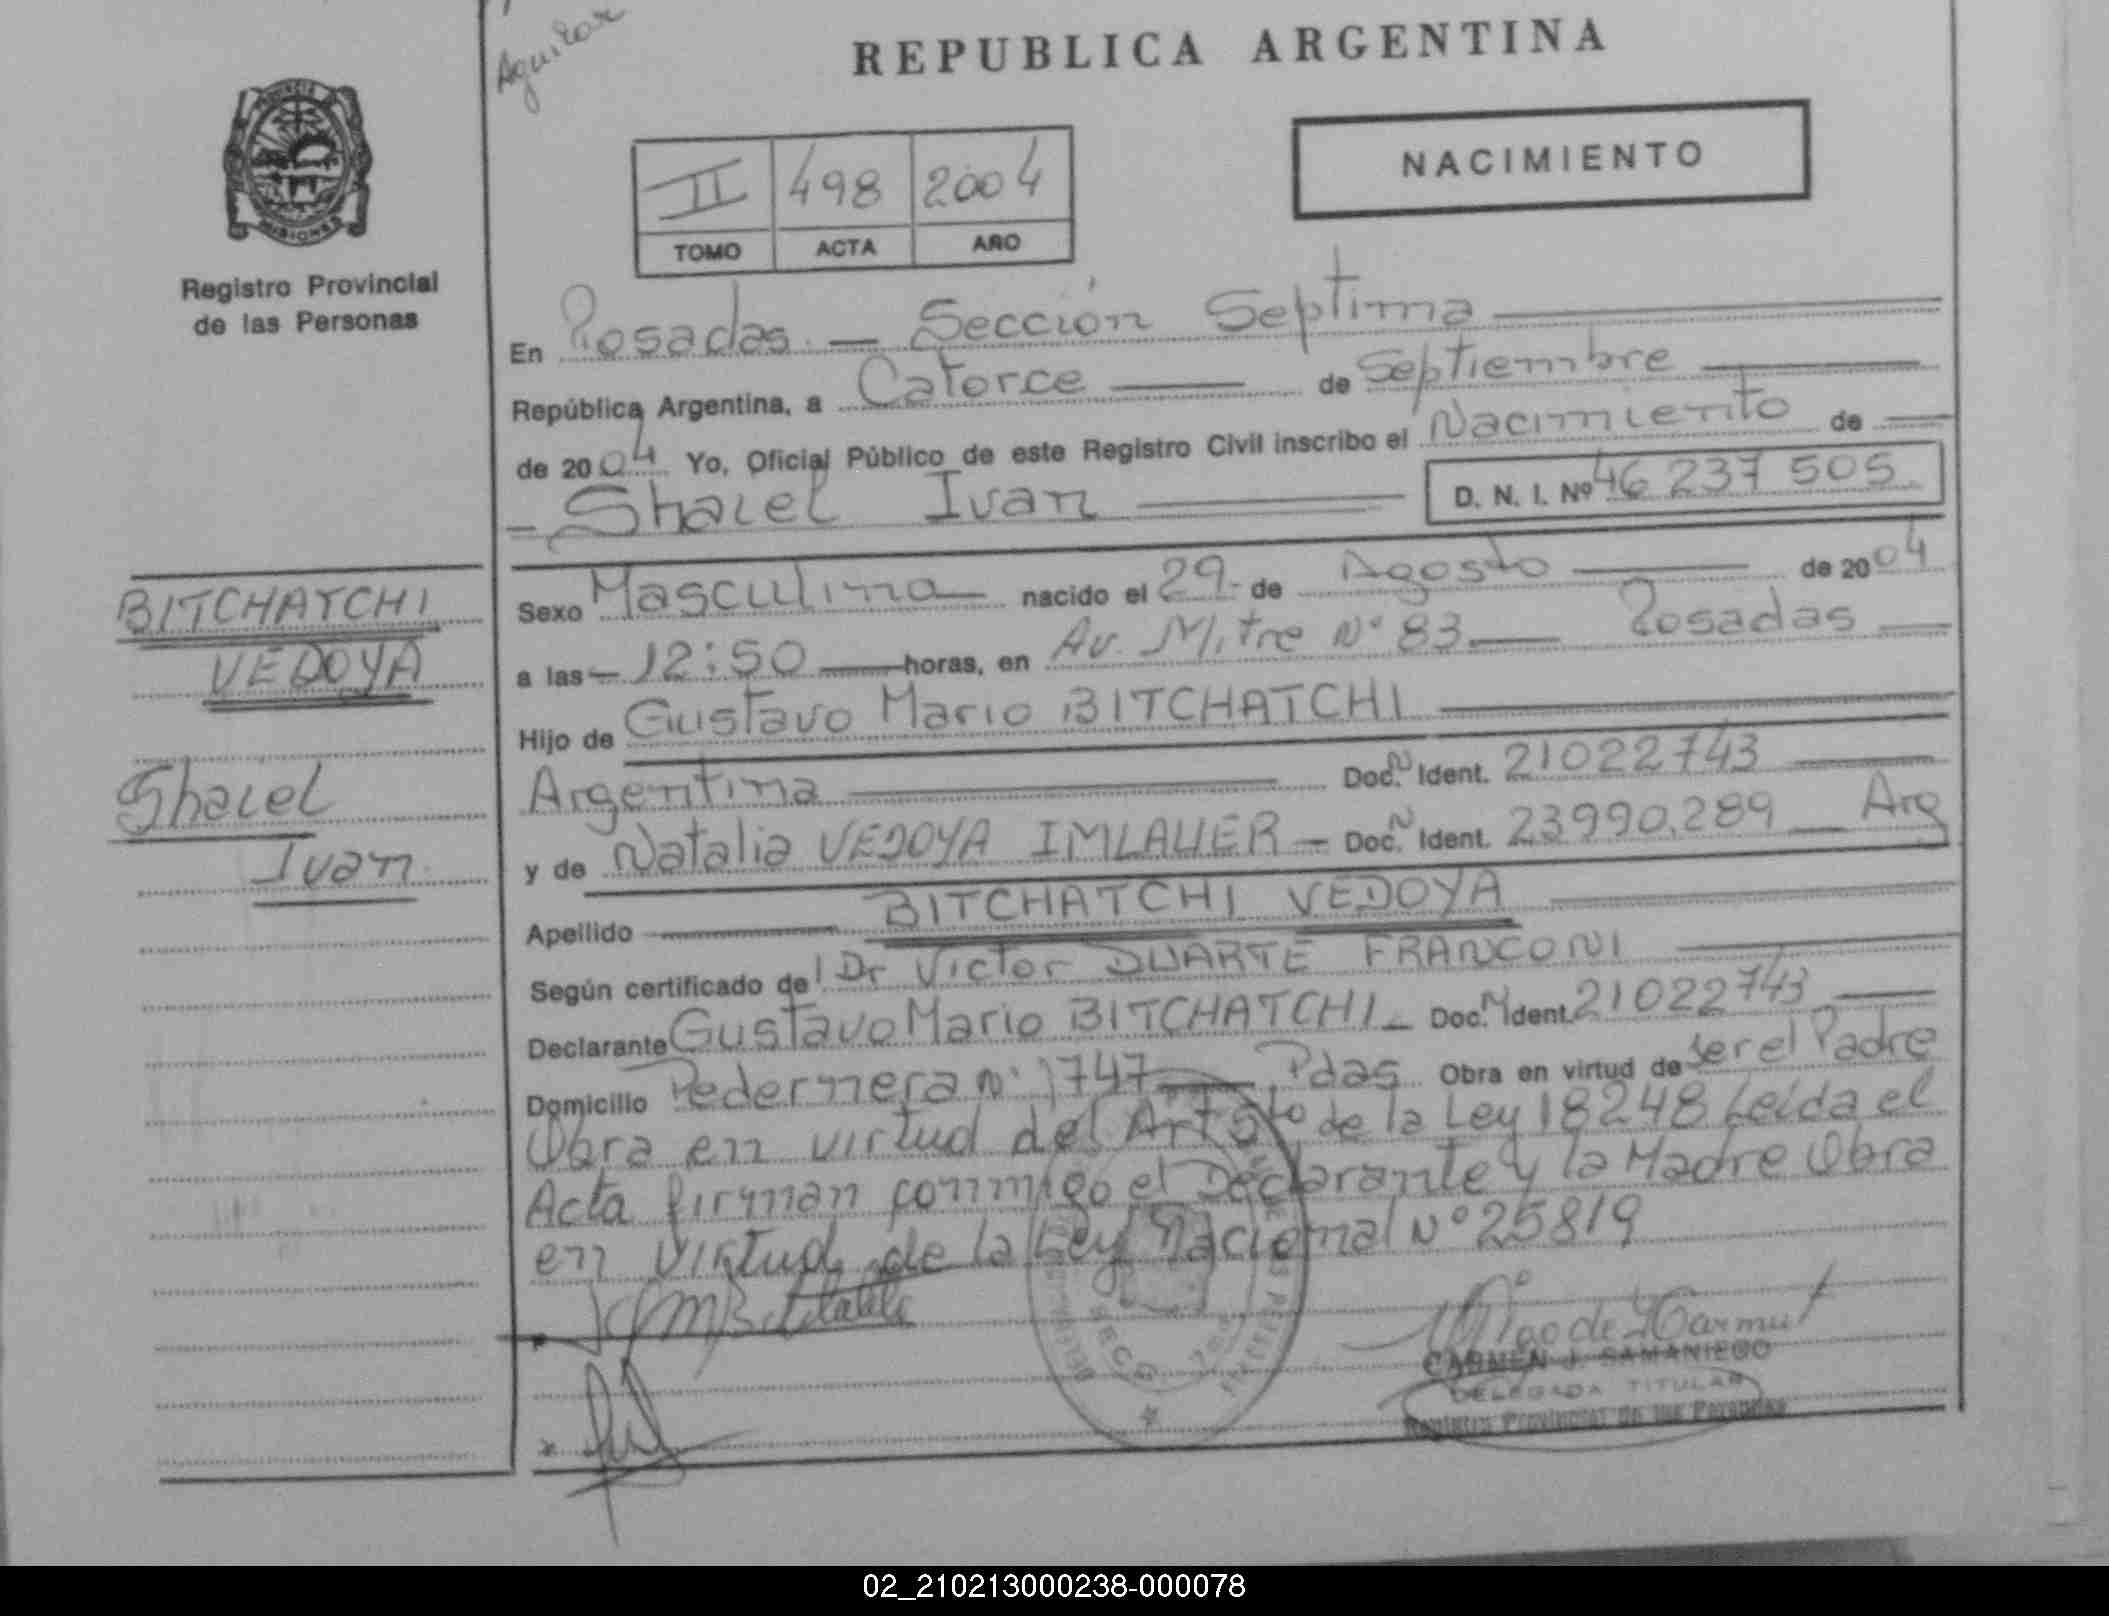 Aguilar
REPUBLICA ARGENTINA
PROVINCIA
MISIONES
Registro Provincial
de las Personas
II 498 2004
TOMO ACTA AÑO
NACIMIENTO
En Posadas — Sección Septima
República Argentina, a Catorce — de Septiembre
de 2004 Yo, Oficial Público de este Registro Civil inscribo el Nacimiento de
Shaiel Ivan
D. N. I. Nº 46 237 505.
BITCHATCHI
VEDOYA
Shaiel
Ivan
Sexo Masculino nacido el 29 de Agosto de 2004
a las — 12:50 — horas, en Av. Mitre Nº 83 — Posadas
Hijo de Gustavo Mario BITCHATCHI
Argentina — Doc. N Ident. 21022743
y de Natalia VEDOYA IMLAUER — Doc. N Ident. 23990.289 — Arg
Apellido — BITCHATCHI VEDOYA
Según certificado del Dr Victor DUARTE FRANCONI
Declarante Gustavo Mario BITCHATCHI — Doc. N Ident. 21022743
Domicilio Pedernera Nº 1747 — Pdas Obra en virtud de ser el Padre
Obra en virtud del Art 5to de la Ley 18248 Leída el
Acta firman conmigo el Declarante y la Madre Obra
en virtud de la Ley Nacional Nº 25819
CARMEN J. SAMANIEGO
DELEGADA TITULAR
Registro Provincial de las Personas
02_210213000238-000078